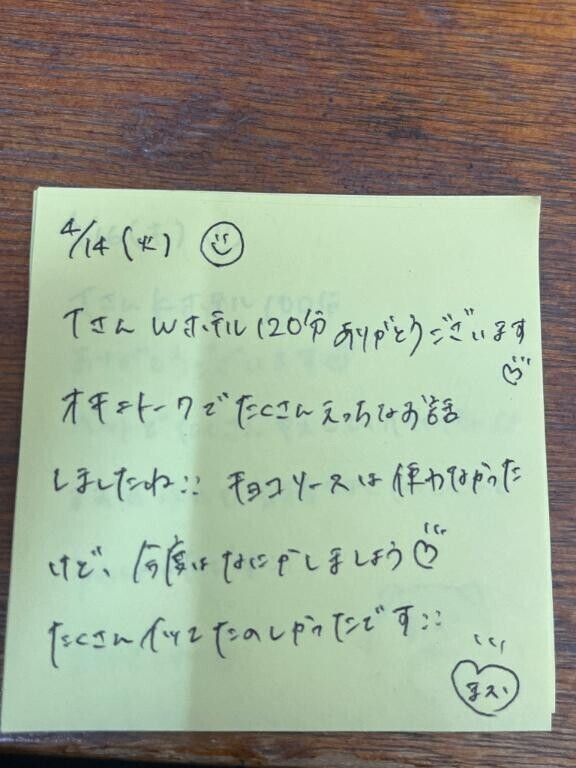 4/14(火)
Tさん Wホテル120分ありがとうございます♡
オキニトークでたくさんえっちなお話
しましたね:: チョコソースは使わなかった
けど、今度はなにかしましょう♡
たくさんイッてたのしかったです::